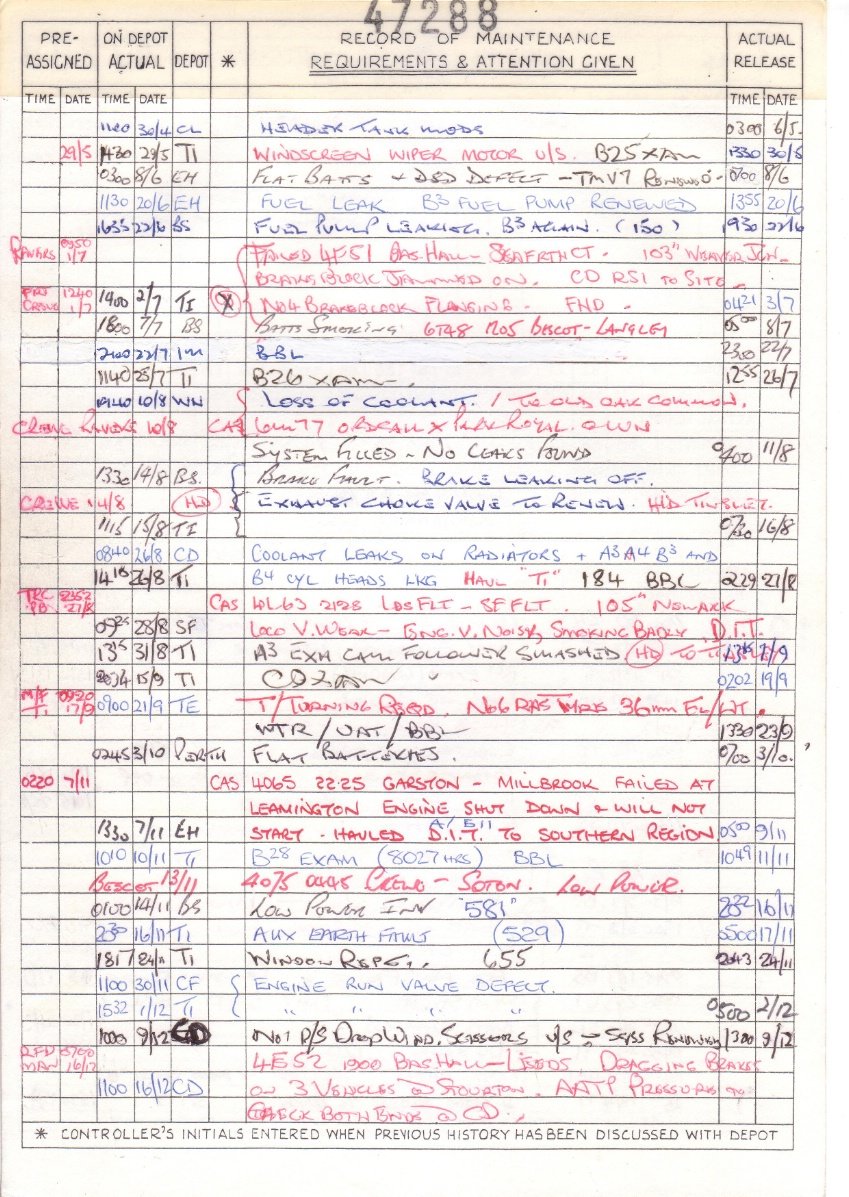 47288
PRE-ASSIGNED ON DEPOT ACTUAL DEPOT * RECORD OF MAINTENANCE REQUIREMENTS & ATTENTION GIVEN ACTUAL RELEASE
TIME DATE TIME DATE TIME DATE
1100 30/4 CL HEADER TANK MODS 0300 6/5.
29/5 1430 29/5 TI WINDSCREEN WIPER MOTOR U/S. B25 XAM 1330 30/5
0300 8/6 EH FLAT BATTS + DSD DEFECT - TMV7 RENEWED. 0700 8/6
1130 20/6 EH FUEL LEAK B3 FUEL PUMP RENEWED 1355 20/6
1635 22/6 BS FUEL PUMP LEAKING. B3 AGAIN. (150) 1930 22/6
RAVERS 0950 1/7 FAILED 4F51 BAS HALL - SEAFRTHCT. 103" WEAVER JCN-
BRAKE BLOCK JAMMED ON. CD RSI TO SITE.
CREWE 1240 1/7 1400 2/7 TI X NO4 BRAKEBLOCK FLANGING. FHD. 0421 3/7
1800 7/7 BS BATTS SMOKING 6T48 1205 BESCOT-LANGLEY 0500 8/7
2100 22/7 IM BBL 2300 22/7
1140 25/7 TI B26 XAM. 1255 26/7
1940 10/8 WN LOSS OF COOLANT. / TO OLD OAK COMMON.
CREWE RAVERS 10/8 CAS 6M77 ORDSALL X PARK ROYAL. @ WN
SYSTEM FILLED - NO LEAKS FOUND 0400 11/8
1330 14/8 BS. BRAKE FAULT. BRAKE LEAKING OFF.
CREWE 14/8 HD EXHAUST CHOKE VALVE TO RENEW. H/D TINSLEY.
1115 15/8 TI 0730 16/8
0840 26/8 CD COOLANT LEAKS ON RADIATORS + A3 A4 B3 AND
1415 26/8 TI B4 CYL HEADS LKG HAUL "TI" 184 BBL 2229 27/8
TRC PB. 2352 27/8 CAS 4L63 2128 LDS FLT - SF FLT. 105" NEWARK
0925 28/8 SF LOCO V. WEAK - ENG. V. NOISY, SMOKING BADLY. D.I.T.
1315 31/8 TI A3 EXH CAM FOLLOWER SMASHED HD TO 1/9
2034 15/9 TI CD XAM 0202 19/9
M/F TI 0920 17/9 0900 21/9 TE T/TURNING REQD. NO6 36mm
WTR / UAT / BBL 1330 23/9
0245 3/10 PERTH FLAT BATTERIES. 0700 3/10.
0220 7/11 CAS 4O65 22.25 GARSTON - MILLBROOK FAILED AT
LEAMINGTON ENGINE SHUT DOWN & WILL NOT
1330 7/11 EH START. HAULED D.I.T. TO SOUTHERN REGION. 0500 9/11
1010 10/11 TI B28 EXAM (8027 HRS) BBL 1049 11/11
BESCOT 13/11 4O75 0445 CREWE - SOTON. LOW POWER.
0100 14/11 BS LOW POWER INV "581" 2232 16/11
2330 16/11 TI AUX EARTH FAULT (529) 0500 17/11
1817 24/11 TI WINDOW REPG. 655 2043 24/11
1100 30/11 CF ENGINE RUN VALVE DEFECT.
1532 1/12 TI " " " " 0500 2/12
1000 9/12 CD NO1 R/S DROP WIND. SCISSORS U/S - SCISS RENEWED 1300 9/12
RFD MAN 0700 16/12 4E52 1900 BAS HALL - LEEDS, DRAGGING BRAKES
1100 16/12 CD ON 3 VEHICLES @ STOURTON. AATP PRESSURE
CHECK BOTH ENDS @ CD.
* CONTROLLER'S INITIALS ENTERED WHEN PREVIOUS HISTORY HAS BEEN DISCUSSED WITH DEPOT